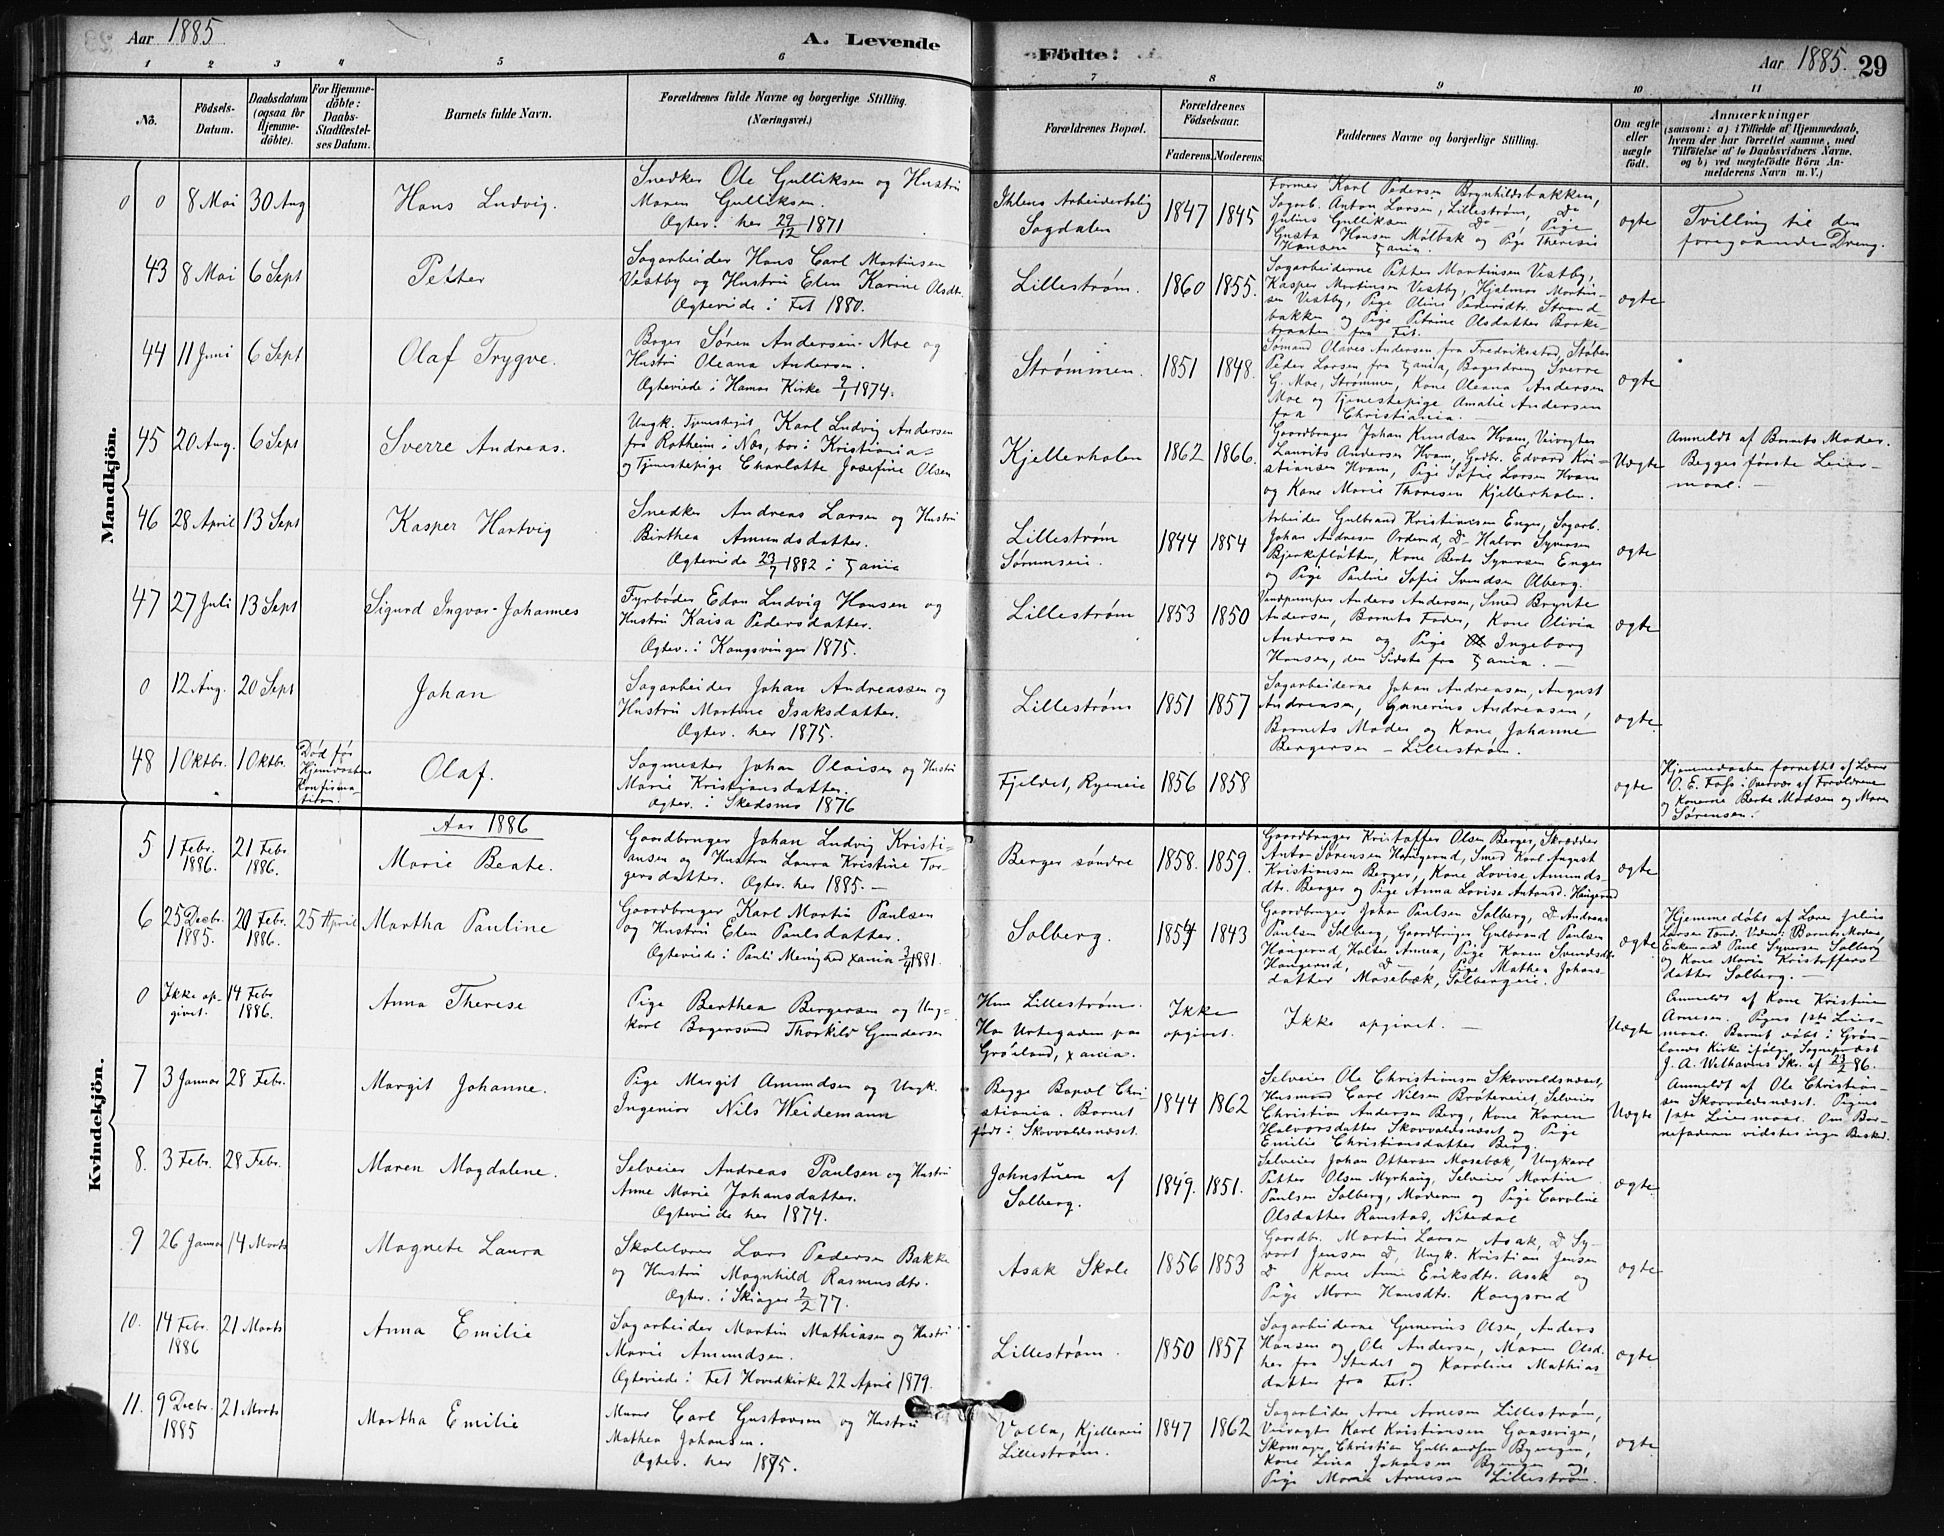 Aar 1885
A. Levende
Födte:
Aar 1885.
29
1 2 3 4 5 6 7 8 9 10 11
No.
Födsels-
Datum.
Daabsdatum
(ogsaa for
Hjemme-
döbte).
For Hjemme-
döbte:
Daabs-
Stadfæstel-
ses Datum.
Barnets fulde Navn.
Forældrenes fulde Navne og borgerlige Stilling.
(Næringsvei.)
Forældrenes Bopæl.
Forældrenes
Födselsaar.
Faderens. Moderens.
Faddernes Navne og borgerlige Stilling.
Om ægte
eller
uægte
födt.
Anmærkninger
(saasom: a) i Tilfælde af Hjemmedaab,
hvem der har forrettet samme, med
Tilföielse af to Daabsvidners Navne,
og b) ved uægtefödte Börn An-
melderens Navn m.V.)
Mandkjön.
0 0 8 Mai 30 Aug
Hans Ludvig.
Snedker Ole Gulliksen og Hustru
Maren Gulliksen.
Ægtev. her 29/12 1871
Ihlens Arbeiderbolig
Sagdalen
1847 1845
Former Karl Pedersen Brynhildsbakken,
Sagarb. Anton Larsen, Lillestrøm, Do
Julius Gulliksen Do, Pige
Gusta Hansen Mølbak og Pige Theresie
Hansen
ægte
Tvilling til den
foregaaende Dreng.
43 8 Mai 6 Sept
Petter
Sagarbeider Hans Carl Martinsen
Vestby og Hustru Elen Karine Olsdt.
Ægteviede i Fet 1880.
Lillestrøm.
1860 1855.
Sagarbeiderne Petter Martinsen Vestby,
Kasper Martinsen Vestby, Hjalmar Martin-
sen Vestby, Pige Oline Pedersdtr. Strand-
bakken og Pige Petrine Olsdatter Borke-
braaten fra Fet.
ægte
44 11 Juni 6 Sept
Olaf Trygve.
Bager Søren Andersen Moe og
Hustru Oleana Andersen.
Ægteviede i Hamar Kirke 9/1 1874.
Strømmen.
1851 1848.
Sømand Olaves Andersen fra Fredriksstad, Støber
Peder Larsen, fra Xania, Bagerdreng Sverre
G. Moe, Strømmen, Kone Oleana Andersen
Moe og Tjenestepige Amalie Andersen
fra Christiania.
ægte
45 20 Aug. 6 Sept
Sverre Andreas.
Ungk. Karl Ludvig Andersen
fra Rotheim i Næs, bor i Kristiania
og Tjenestepige Charlotte Josefine Olsen
Kjellerholen
1862 1866.
Gaardbruger Johan Knudsen Hvam, Veivogter
Laurits Andersen Hvam, Gbdr. Edvard Kri-
stiansen Hvam, Pige Sofie Larsen Hvam
og Kone Marie Thoresen Kjellerholen.
Uægte
Anmeldt af Barnets Moder.
Begges første Leier-
maal. -
46 28 April 13 Sept
Kasper Hartvig
Snedker Andreas Larsen og Hustru
Birthea Amundsdatter.
Ægteviede 23/7 1882 i Xania
Lillestrøm
1844 1854
Arbeider Gulbrand Kristiansen Enger, Sagarb.
Johan Andresen Orderud, Do Halvor Syversen
Bjerkefløtten, Kone Berte Syversen Enger
og Pige Pauline Sofie Svendsen Alberg.
ægte
47 27 Juli 13 Sept
Sigurd Ingvar Johannes
Fyrbøder Edon Ludvig Hansen og
Hustru Kaisa Pedersdatter.
Ægtev. i Kongsvinger 1875.
Lillestrøm
1853 1850
Vandpumper Anders Andersen, Smed Brynte
Andersen, Barnets Fader, Kone Olivia
Andersen og Pige Ingeborg
Hansen, den Sidste fra Xania. -
ægte
0 12 Aug. 20 Sept
Johan
Sagarbeider Johan Andreassen og
Hustru Martine Isaksdatter.
Ægtev. her 1875.
Lillestrøm
1851 1857
Sagarbeiderne Johan Andreasen, August
Andreasen, Gunerius Andreasen,
Barnets Moder og Kone Johanne
Bergersen - Lillestrøm.
ægte.
48 1 Oktbr. 1 Oktbr.
Død før
Hjemdaabens
Konfirma-
tion.
Olaf.
Sagmester Johan Olaisen og Hustru
Marie Kristiansdatter.
Ægtev. i Skedsmo 1876
Fjeldet, Ryeneie
1856 1858
ægte
Hjemmedaaben forrettet af Lærer
O. E. Foss. Overvær af Forældrene
og Konerne Berte Madsen og Maren
Sørensen.
Kvindekjön.
Aar 1886
5 1 Febr. 1886. 21 Febr 1886.
Marie Beate.
Gaardbruger Johan Ludvig Kristi-
ansen og Hustru Laura Kristine Tor-
gersdatter. Ægtev. her 1885. -
Berger søndre
1858. 1859.
Gaardbruger Kristoffer Olsen Berger, Skrædder
Anton Sørensen Haugerud, Smed Karl August
Kristiansen Berger, Kone Lovise Amunds-
dtr. Berger og Pige Anna Lovise Antonsd. Haugerud
ægte
6 25 Decbr. 1885. 20 Febr. 1886. 25 April
Martha Pauline
Gaardbruger Karl Martin Paulsen
og Hustru Elen Paulsdatter.
Ægteviede i Pauli Menighed Xania 3/4 1881.
Solberg.
1854 1843
Gaardbruger Johan Paulsen Solberg, Do Andreas
Paulsen Solberg, Gaardbruger Gulbrand Paulsen
Haugerud, Holter Annex, Pige Karen Svendsdtr
Haugerud, Do, Pige Mathea Johans-
datter Mosebæk, Solbergeie.
ægte
Hjemmedøbt af Lærer Julius
Larsen Vidner: Barnets Moder,
Enkemand Paul Syversen Solberg
og Kone Maria Kristoffers-
datter Solberg. -
0 Ikke op-
givet. 14 Febr 1886.
Anna Therese
Pige Berthea Bergersen og Ung-
karl Bagersvend Thorkild Gundersen
Hun Lillestrøm.
Han Urtegaden paa
Grønland, Xania.
Ikke
opgivet.
Ikke opgivet. -
Uægte
Anmeldt af Kone Kristine
Arnesen. Pigens 1ste Leier-
maal. Barnet døbt i Grøn-
lands Kirke ifølge Sognepræst
J. A. Welhavens Skr. af 23/2 86.
7 3 Januar 28 Febr.
Margit Johanne.
Pige Margit Amundsen og Ungk.
Ingeniør Nils Weidemann
Begge Bopæl Chri-
stiania. Barnet
født i Skovvaldsnæset.
1844 1862
Selveier Ole Christiansen Skovvaldsnæset,
Husmand Carl Nilsen Bråtereiet, Selveier
Christian Andersen Berg, Kone Karen
Halvorsdatter Skovvaldsnæset og Pige
Emilie Christiansdatter Berg.
Uægte
Anmeldt af Ole Christian-
sen Skovvaldsnæset. Pigens
1ste Leiermaal. Om Bar-
nefaderen vidstes ingen Besked.
8. 3 Febr. 28 Febr.
Maren Magdalene.
Selveier Andreas Paulsen og Hustru
Anne Marie Johansdatter.
Ægteviede her 1874.
Johnstuen af
Solberg.
1849. 1851.
Selveier Johan Ottersen Mosebæk, Ungkarl
Petter Olsen Myrhaug, Selveier Martin
Paulsen Solberg, Moderen og Pige Caroline
Olsdatter Ramstad, Nitedal
ægte
9 26 Januar 14 Marts
Magnete Laura
Skolelærer Lars Pedersen Bakke
og Hustru Magnhild Rasmusdtr.
Ægtev. i Skiager 2/2 77.
Asak Skole
1856 1853
Gaardbr. Martin Larsen Asak, Do Sy-
vert Jensen Do, Ungk. Kristian Jensen
Do Kone Anne Eriksdtr. Asak og
Pige Maren Hansdtr. Kongsrud
ægte
10. 14 Febr. 1886 21 Marts
Anna Emilie
Sagarbeider Martin Mathiasen og Hustru
Marie Amundsen.
Ægteviede i Fet Hovedkirke 22 April 1879.
Lillestrøm.
1850 1857
Sagarbeiderne Gunerius Olsen, Anders
Hansen og Ole Andersen, Maren Olsd.
her fra Stedet og Karoline Mathias-
datter fra Fet.
ægte
11. 9 Decbr. 1885 21 Marts
Martha Emilie
Murer Carl Gustavsen og Hustru
Mathea Johansen.
Ægtev. her 1875.
Volla, Kjellereie
Lillestrøm.
1847 1862
Sagarbeider Arne Arnesen Lillestrøm,
Veivogter Karl Kristiansen Gaasevigen,
Skomager Christian Gulbrandsen Byengen,
Kone Lina Johansen Byengen og
Pige Marie Arnesen Lillestrøm.
ægte